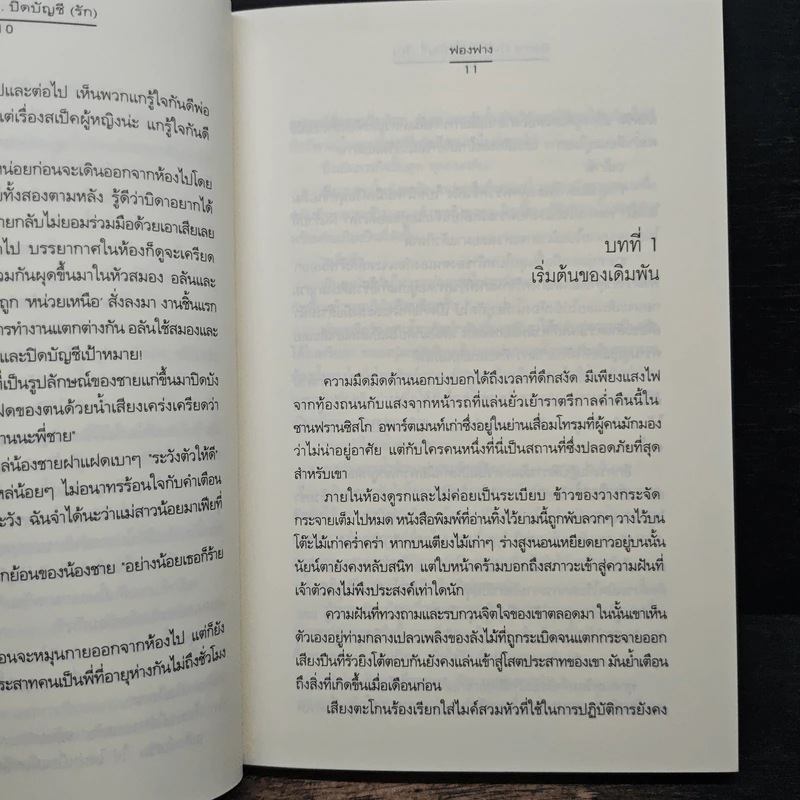 . ปิดบัญชี (รัก)
10
ปและต่อไป เห็นพวกแกรู้ใจกันดีพ่อ
แต่เรื่องสเป็คผู้หญิงน่ะ แกรู้ใจกันดี
หน่อยก่อนจะเดินออกจากห้องไปโดย
ยทั้งสองตามหลัง รู้ดีว่าบิดาอยากได้
ายกลับไม่ยอมร่วมมือด้วยเอาเสียเลย
าไป บรรยากาศในห้องก็ดูจะเครียด
วมกันผุดขึ้นมาในหัวสมอง อลันและ
ถูก 'หน่วยเหนือ' สั่งลงมา งานชิ้นแรก
ารทำงานแตกต่างกัน อลันใช้สมองและ
และปิดบัญชีเป้าหมาย!
ที่เป็นรูปลักษณ์ของชายแก่ขึ้นมาปิดบัง
ฝดของตนด้วยน้ำเสียงเคร่งเครียดว่า
านนะพี่ชาย"
หล่น้องชายฝาแฝดเบาๆ "ระวังตัวให้ดี"
หล่น้อยๆ ไม่อนาทรร้อนใจกับคำเตือน
ะวัง ฉันจำได้นะว่าแม่สาวน้อยมาเฟียที่
กย้อนของน้องชาย "อย่างน้อยเธอก็ร้าย
อนจะหมุนกายออกจากห้องไป แต่ก็ยัง
ระสาทคนเป็นพี่ที่อายุห่างกันไม่ถึงชั่วโมง
ฟองฟาง
11
บทที่ 1
เริ่มต้นของเดิมพัน
ความมืดมิดด้านนอกบ่งบอกได้ถึงเวลาที่ดึกสงัด มีเพียงแสงไฟ
จากท้องถนนกับแสงจากหน้ารถที่แล่นยั่วเย้าราตรีกาลค่ำคืนนี้ใน
ซานฟรานซิสโก อพาร์ตเมนท์เก่าซึ่งอยู่ในย่านเสื่อมโทรมที่ผู้คนมักมอง
ว่าไม่น่าอยู่อาศัย แต่กับใครคนหนึ่งที่นี่เป็นสถานที่ซึ่งปลอดภัยที่สุด
สำหรับเขา
ภายในห้องดูรกและไม่ค่อยเป็นระเบียบ ข้าวของวางกระจัด
กระจายเต็มไปหมด หนังสือพิมพ์ที่อ่านทิ้งไว้ยามนี้ถูกพับลวกๆ วางไว้บน
โต๊ะไม้เก่าคร่ำคร่า หากบนเตียงไม้เก่าๆ ร่างสูงนอนเหยียดยาวอยู่บนนั้น
นัยน์ตายังคงหลับสนิท แต่ใบหน้าคร้ามบอกถึงสภาวะเข้าสู่ความฝันที่
เจ้าตัวคงไม่พึงประสงค์เท่าใดนัก
ความฝันที่ทวงถามและรบกวนจิตใจของเขาตลอดมา ในนั้นเขาเห็น
ตัวเองอยู่ท่ามกลางเปลวเพลิงของลังไม้ที่ถูกระเบิดจนแตกกระจายออก
เสียงปืนที่รัวยิงโต้ตอบกันยังคงแล่นเข้าสู่โสตประสาทของเขา มันย้ำเตือน
ถึงสิ่งที่เกิดขึ้นเมื่อเดือนก่อน
เสียงตะโกนร้องเรียกใส่ไมค์สวมหัวที่ใช้ในการปฏิบัติการยังคง